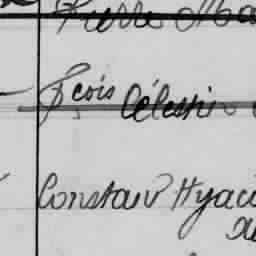 Pierre Ma
Fcois Célestin
Constant Hyaci